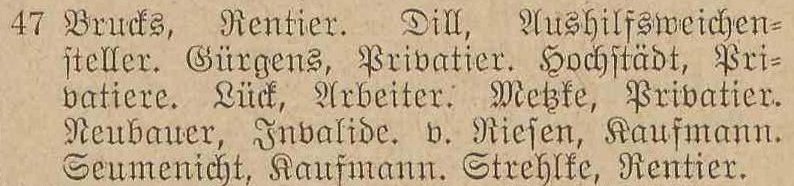 47 Brucks, Rentier. Dill, Aushilfsweichen-
steller. Gürgens, Privatier. Hochstädt, Pri-
vatiere. Lück, Arbeiter. Metzke, Privatier.
Neubauer, Invalide. v. Riesen, Kaufmann.
Seumenicht, Kaufmann. Strehlke, Rentier.